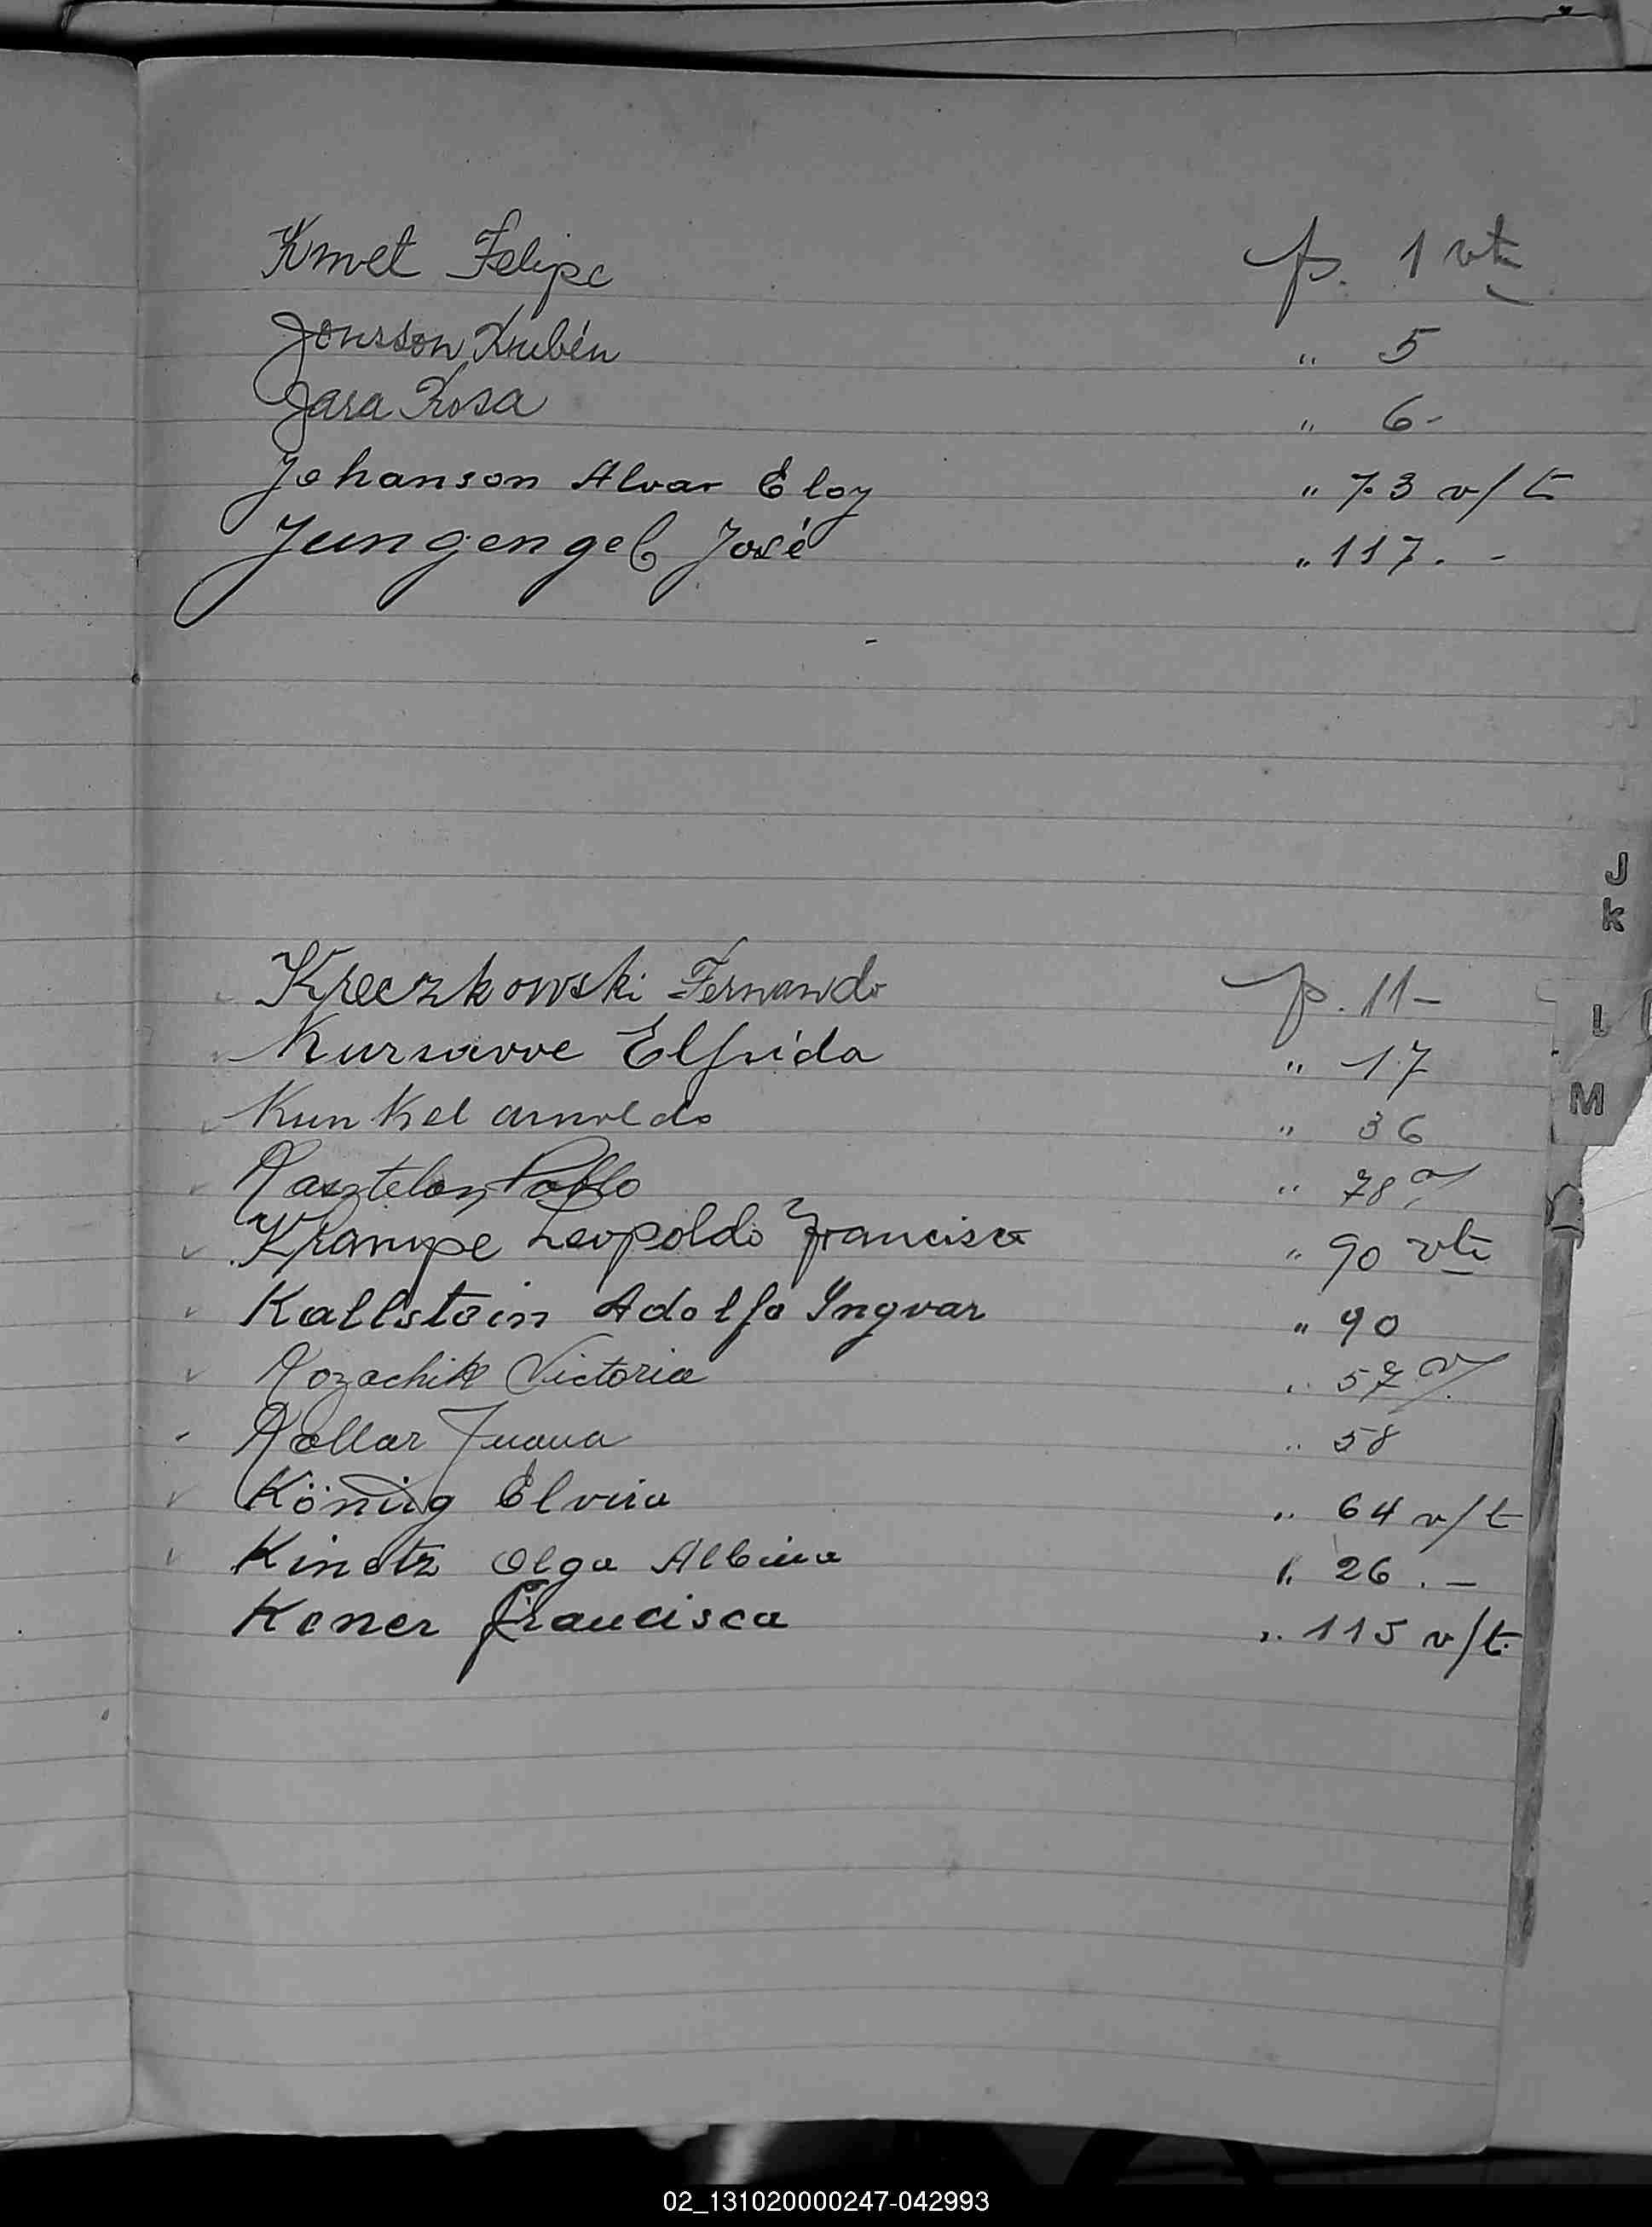 Kmet Felipe p. 1 vta
Jonsson Rubén " 5
Jara Rosa " 6-
Johanson Alvar Eloy " 73 v/t
Jungengel José " 117. -
J
K
Kreczkowski Fernando p. 11-
L
Kursavve Elfrida " 17
M
Kunkel Arnoldo " 36
Kasztelan Pablo " 78 v/
Krampe Leopoldo Francisco " 90 vta
Kallstein Adolfo Yngvar " 90
Kozachik Victoria " 57 v/.
Kollar Juana " 58
König Elvira " 64 v/t
Kinetz Olga Albina " 26. -
Kener Francisca " 115 v/t.
02_131020000247-042993